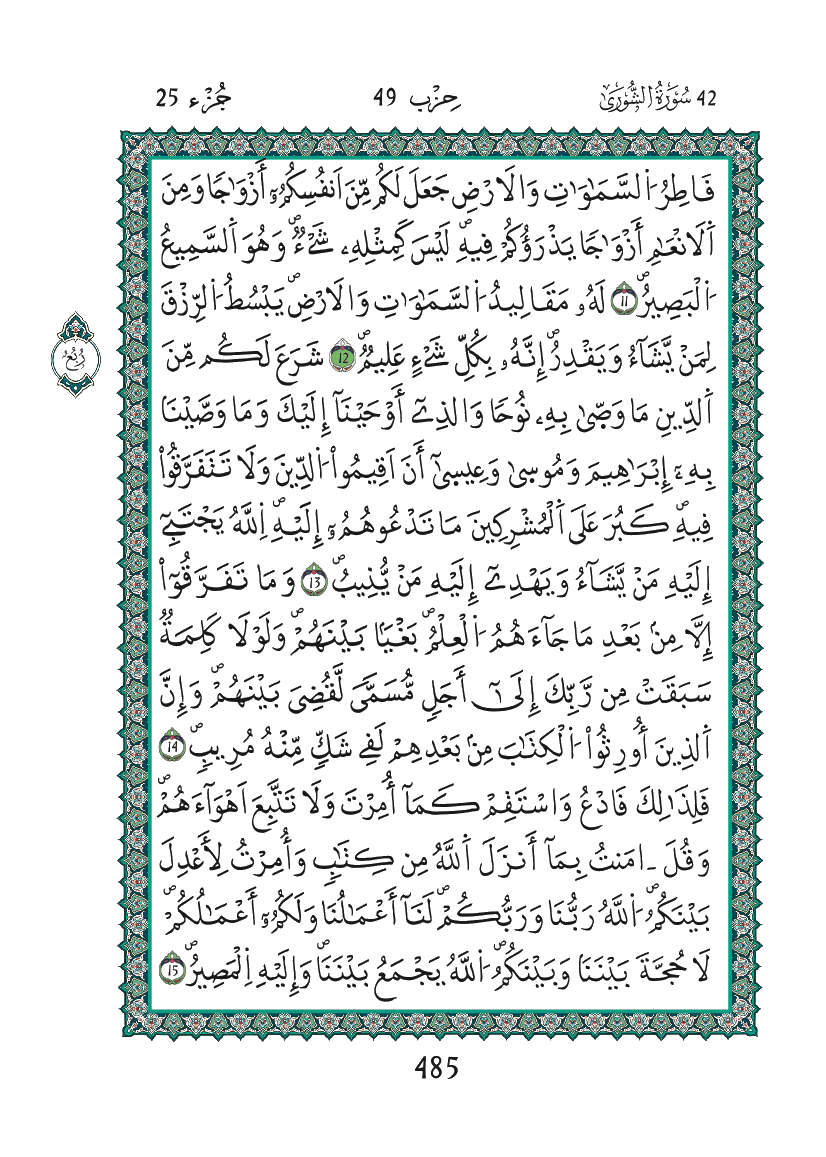 42 سُورَةُ الشُّورَىٰ حِزْب 49 جُزْء 25
فَاطِرُ اُ۬لسَّمَٰوَٰتِ وَالَارْضِ جَعَلَ لَكُم مِّنَ اَنفُسِكُمُۥٓ أَزْوَٰجاٗ وَمِنَ
اَ۬لَانْعَٰمِ أَزْوَٰجاٗ يَذْرَؤُكُمْ فِيهِۖ لَيْسَ كَمِثْلِهِۦ شَےْءٞۖ وَهُوَ اَ۬لسَّمِيعُ
اُ۬لْبَصِيرُۖ 11 لَهُۥ مَقَالِيدُ اُ۬لسَّمَٰوَٰتِ وَالَارْضِۖ يَبْسُطُ اُ۬لرِّزْقَ
لِمَنْ يَّشَآءُ وَيَقْدِرُۖ إِنَّهُۥ بِكُلِّ شَےْءٍ عَلِيمٞۖ 12 شَرَعَ لَكُم مِّنَ
اَ۬لدِّينِ مَا وَصّ۪يٰ بِهِۦ نُوحاٗ وَالذِےٓ أَوْحَيْنَآ إِلَيْكَ وَمَا وَصَّيْنَا
بِهِۦٓ إِبْرَٰهِيمَ وَمُوس۪يٰ وَعِيس۪يٰٓ أَنَ اَقِيمُواْ اُ۬لدِّينَ وَلَا تَتَفَرَّقُواْ
فِيهِۖ كَبُرَ عَلَى اَ۬لْمُشْرِكِينَ مَا تَدْعُوهُمُۥٓ إِلَيْهِۖ اِ۬للَّهُ يَجْتَبِےٓ
إِلَيْهِ مَنْ يَّشَآءُ وَيَهْدِےٓ إِلَيْهِ مَنْ يُّنِيبُۖ 13 وَمَا تَفَرَّقُوٓاْ
إِلَّا مِنۢ بَعْدِ مَا جَآءَهُمُ اُ۬لْعِلْمُۖ بَغْياَۢ بَيْنَهُمْۖ وَلَوْلَا كَلِمَةٞ
سَبَقَتْ مِن رَّبِّكَ إِلَىٰٓ أَجَلٖ مُّسَمّيٗ لَّقُضِيَ بَيْنَهُمْۖ وَإِنَّ
اَ۬لذِينَ أُورِثُواْ اُ۬لْكِتَٰبَ مِنۢ بَعْدِهِمْ لَفِے شَكّٖ مِّنْهُ مُرِيبٖۖ 14
فَلِذَٰلِكَ فَادْعُ وَاسْتَقِمْ كَمَآ أُمِرْتَ وَلَا تَتَّبِعَ اَهْوَآءَهُمْۖ
وَقُلَ ـ اٰمَنتُ بِمَآ أَنزَلَ اَ۬للَّهُ مِن كِتَٰبٖ وَأُمِرْتُ لِأَعْدِلَ
بَيْنَكُمُۖ اُ۬للَّهُ رَبُّنَا وَرَبُّكُمْۖ لَنَآ أَعْمَٰلُنَا وَلَكُمُۥٓ أَعْمَٰلُكُمْۖ
لَا حُجَّةَ بَيْنَنَا وَبَيْنَكُمُۖ اُ۬للَّهُ يَجْمَعُ بَيْنَنَاۖ وَإِلَيْهِ اِ۬لْمَصِيرُۖ 15
رُبُعُ
485